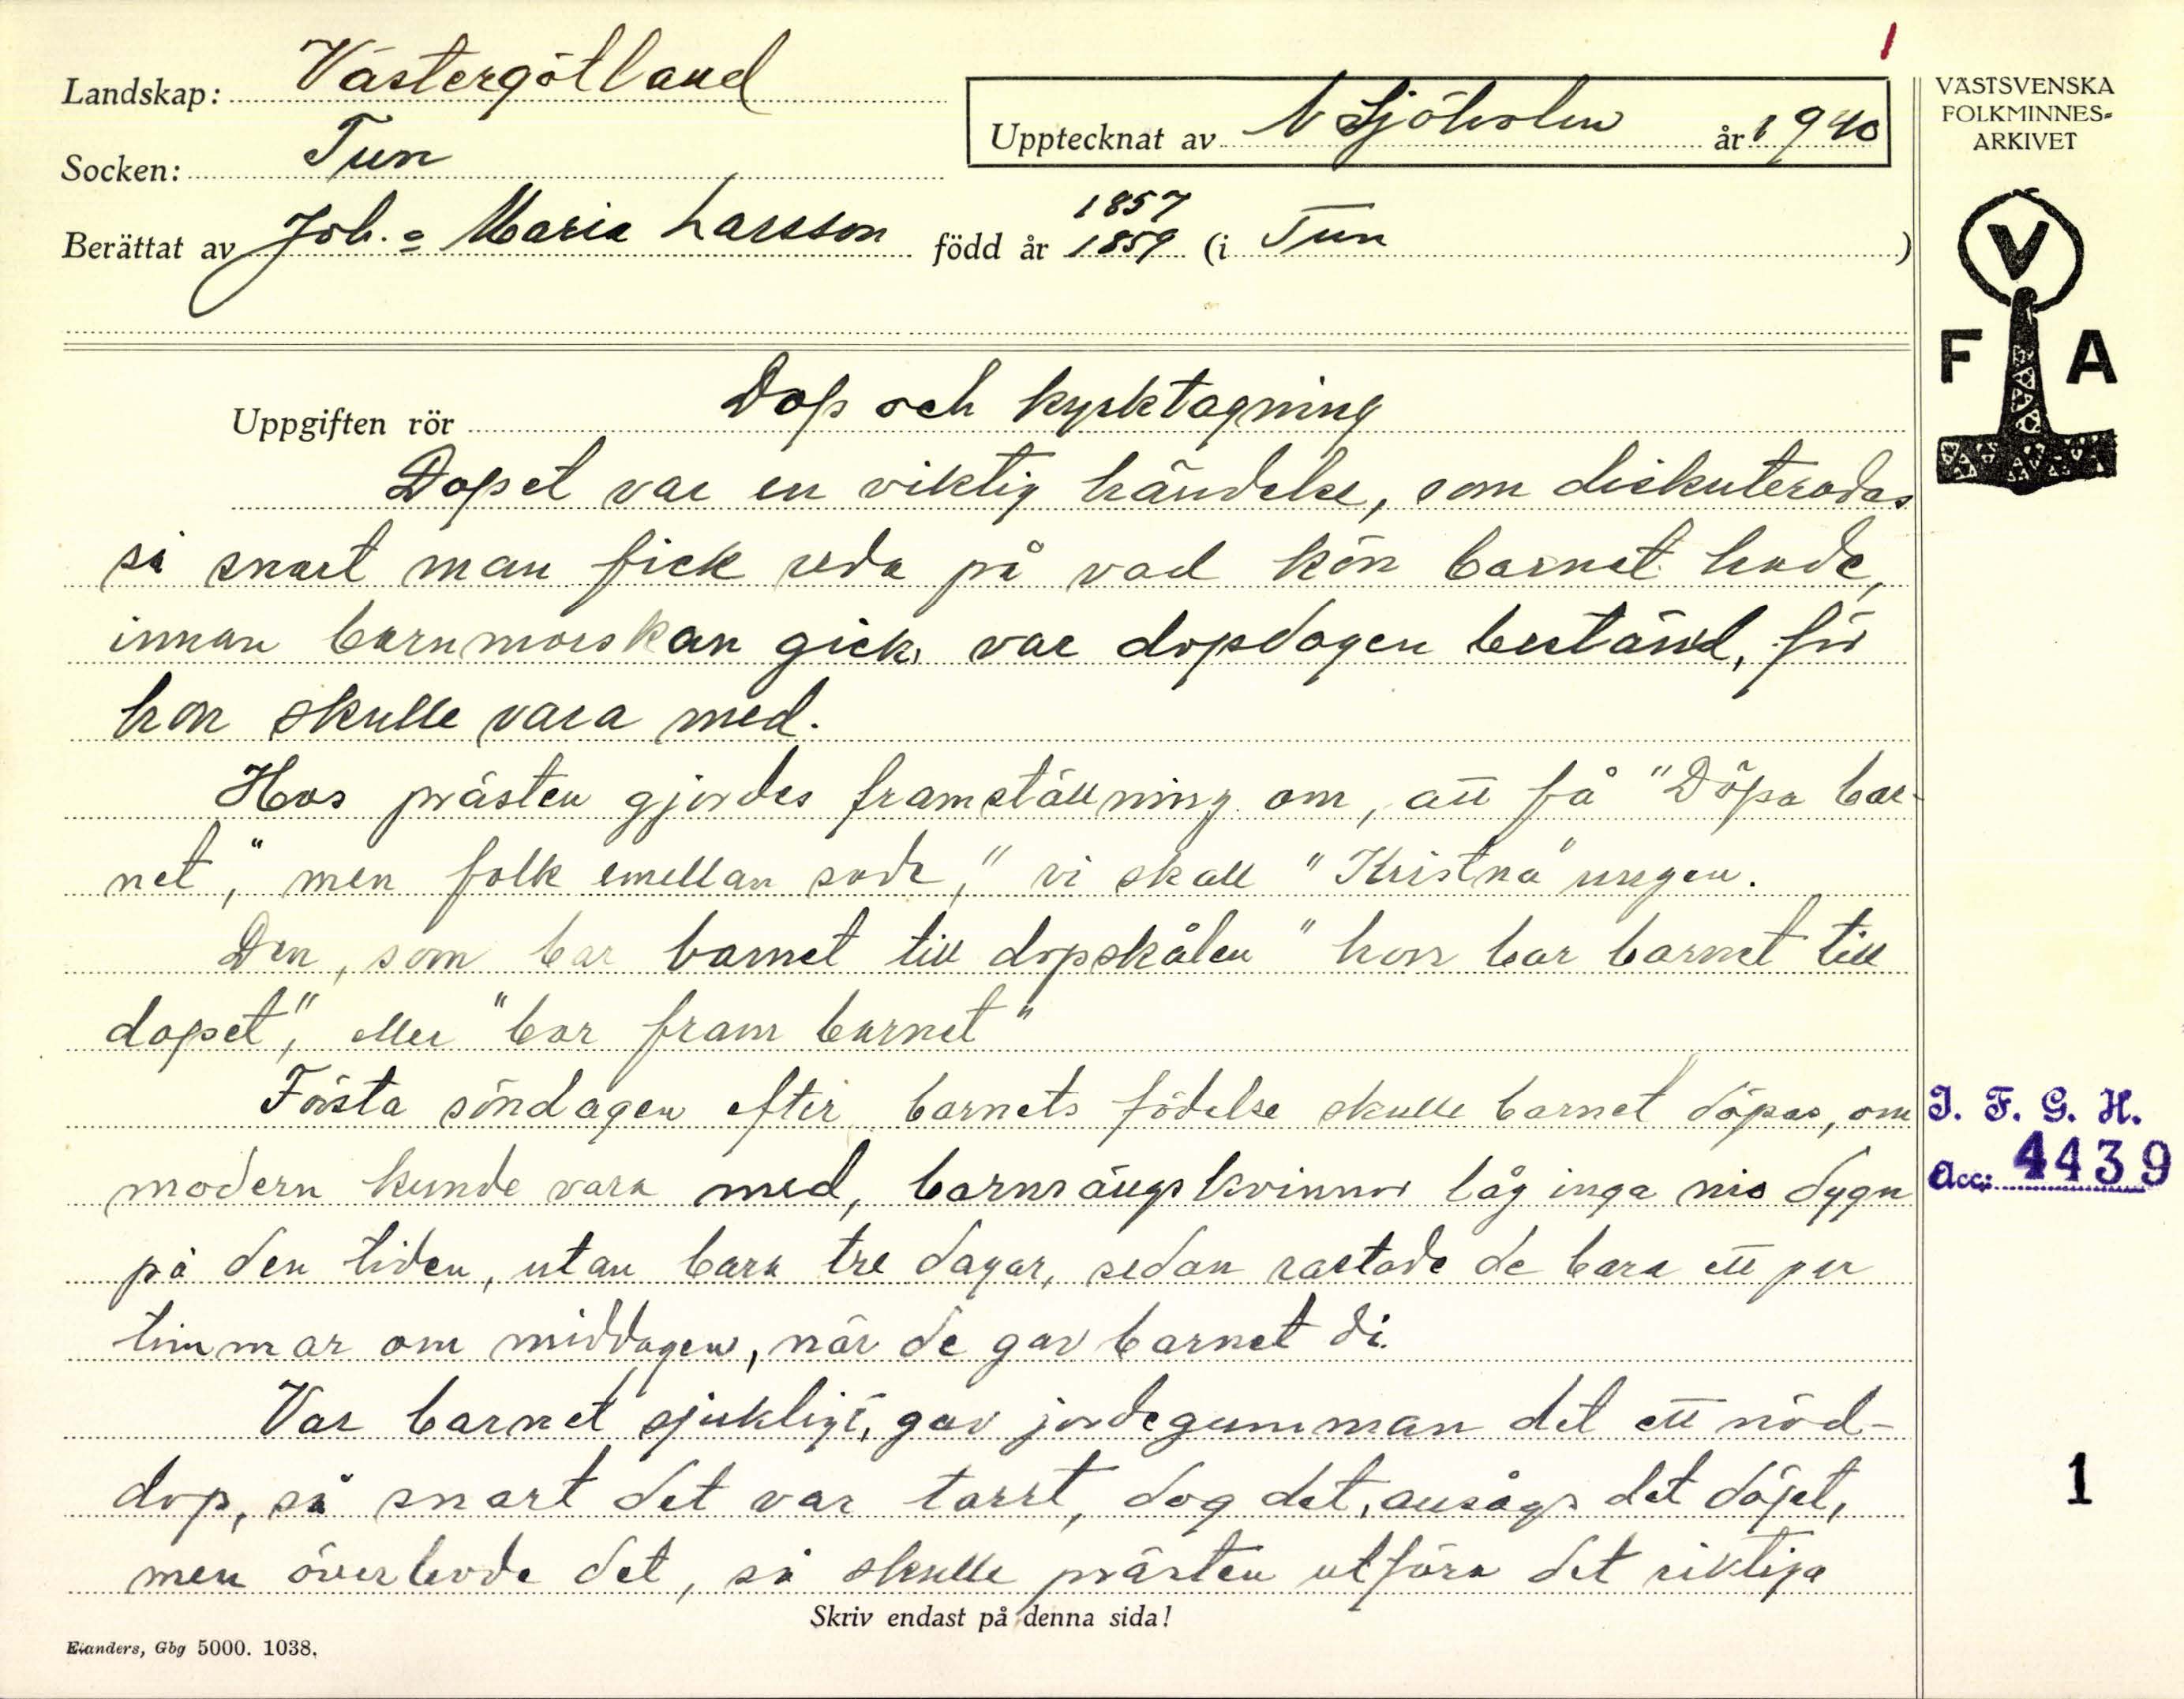 1
Landskap: Västergötland
Socken: Tun
Upptecknat av N Sjöholm år 1940
1857
Berättat av Joh. = Maria Larsson född år 1859 (i Tun )
Uppgiften rör Dop och kyrktagning
Dopet var en viktig händelse, som diskuterades
så snart man fick reda på vad kön barnet hade,
innan barnmorskan gick, var dopdagen bestämd, för
hon skulle vara med.
Hos prästen gjordes framställning om, att få "Döpa bar-
net," men folk emellan sade, "vi skall "Kristna" ungen.
Den, som bar barnet till dopskålen "hon bar barnet till
dopet," eller "bar fram barnet"
Första söndagen efter barnets födelse skulle barnet döpas, om
modern kunde vara med, barnsängskvinnor låg inga nio dygn
på den tiden, utan bara tre dagar, sedan rastade de bara ett par
timmar om middagen, när de gav barnet di.
Var barnet sjukligt, gav jordegumman det ett nöd-
dop, så snart det var torrt, dog det, ansågs det döpt,
men överlevde det, så skulle prästen utföra det riktiga
Skriv endast på denna sida!
Elanders, Gbg 5000. 1038.
VÄSTSVENSKA
FOLKMINNES-
ARKIVET
V
F A
I. F. G. H.
Acc: 4439
1